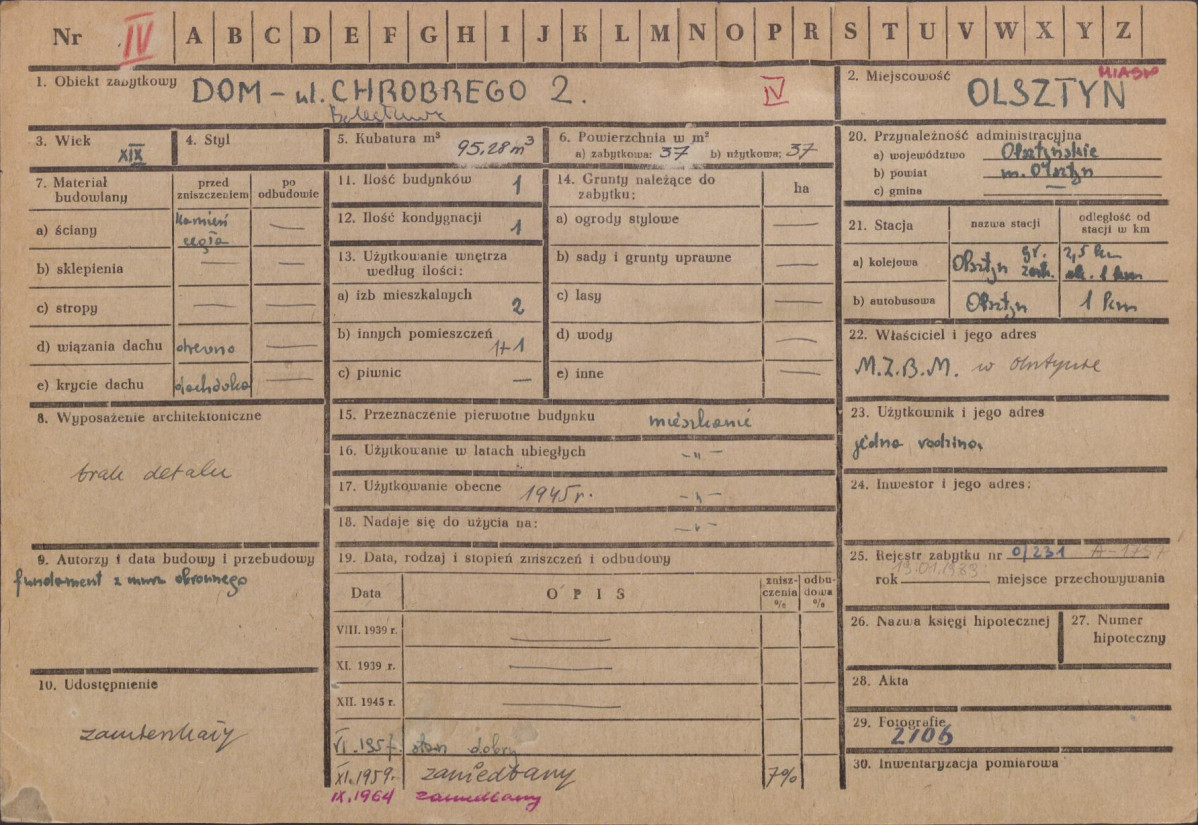 Nr IV A B C D E F G H I J K L M N O P R S T U V W X Y Z
1. Obiekt zabytkowy DOM - ul. CHROBREGO 2. IV
Bolesława
2. Miejscowość OLSZTYN MIASTO
3. Wiek XIX
4. Styl
5. Kubatura m³ 95,28 m³
6. Powierzchnia w m²
a) zabytkowa: 37 b) użytkowa: 37
7. Materiał budowlany
przed zniszczeniem
po odbudowie
a) ściany kamień cegła —
b) sklepienia — —
c) stropy — —
d) wiązania dachu drewno —
e) krycie dachu dachówka —
8. Wyposażenie architektoniczne
brak detalu
9. Autorzy i data budowy i przebudowy
fundament z muru obronnego
10. Udostępnienie
zamieszkały
11. Ilość budynków 1
12. Ilość kondygnacji 1
13. Użytkowanie wnętrza
według ilości:
a) izb mieszkalnych 2
b) innych pomieszczeń 1+1
c) piwnic —
14. Grunty należące do
zabytku:
ha
a) ogrody stylowe —
b) sady i grunty uprawne —
c) lasy —
d) wody —
e) inne —
15. Przeznaczenie pierwotne budynku mieszkanie
16. Użytkowanie w latach ubiegłych -"-
17. Użytkowanie obecne 1945 r. -"-
18. Nadaje się do użycia na: -"-
19. Data, rodzaj i stopień zniszczeń i odbudowy
Data
OPIS
znisz-
czenia
%
odbu-
dowa
%
VIII. 1939 r. —
XI. 1939 r. —
XII. 1945 r. —
VI. 1957. stan dobry
XI. 1959. zaniedbany 7%
IX. 1964 zaniedbany
20. Przynależność administracyjna
a) województwo Olsztyńskie
b) powiat m. Olsztyn
c) gmina —
21. Stacja
nazwa stacji
odległość od
stacji w km
a) kolejowa Olsztyn gł. 2,5 km
zach. ok. 1 km
b) autobusowa Olsztyn 1 km
22. Właściciel i jego adres
M.Z.B.M. w Olsztynie
23. Użytkownik i jego adres
jedna rodzina
24. Inwestor i jego adres:
25. Rejestr zabytku nr 0/231
rok miejsce przechowywania
26. Nazwa księgi hipotecznej
27. Numer
hipoteczny
28. Akta
29. Fotografie
2106
30. Inwentaryzacja pomiarowa